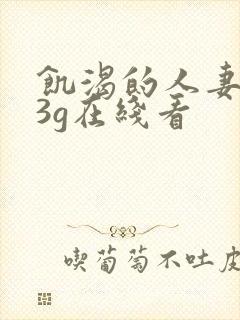 飢渴的人妻
3g在綫看
喫葡萄不吐皮